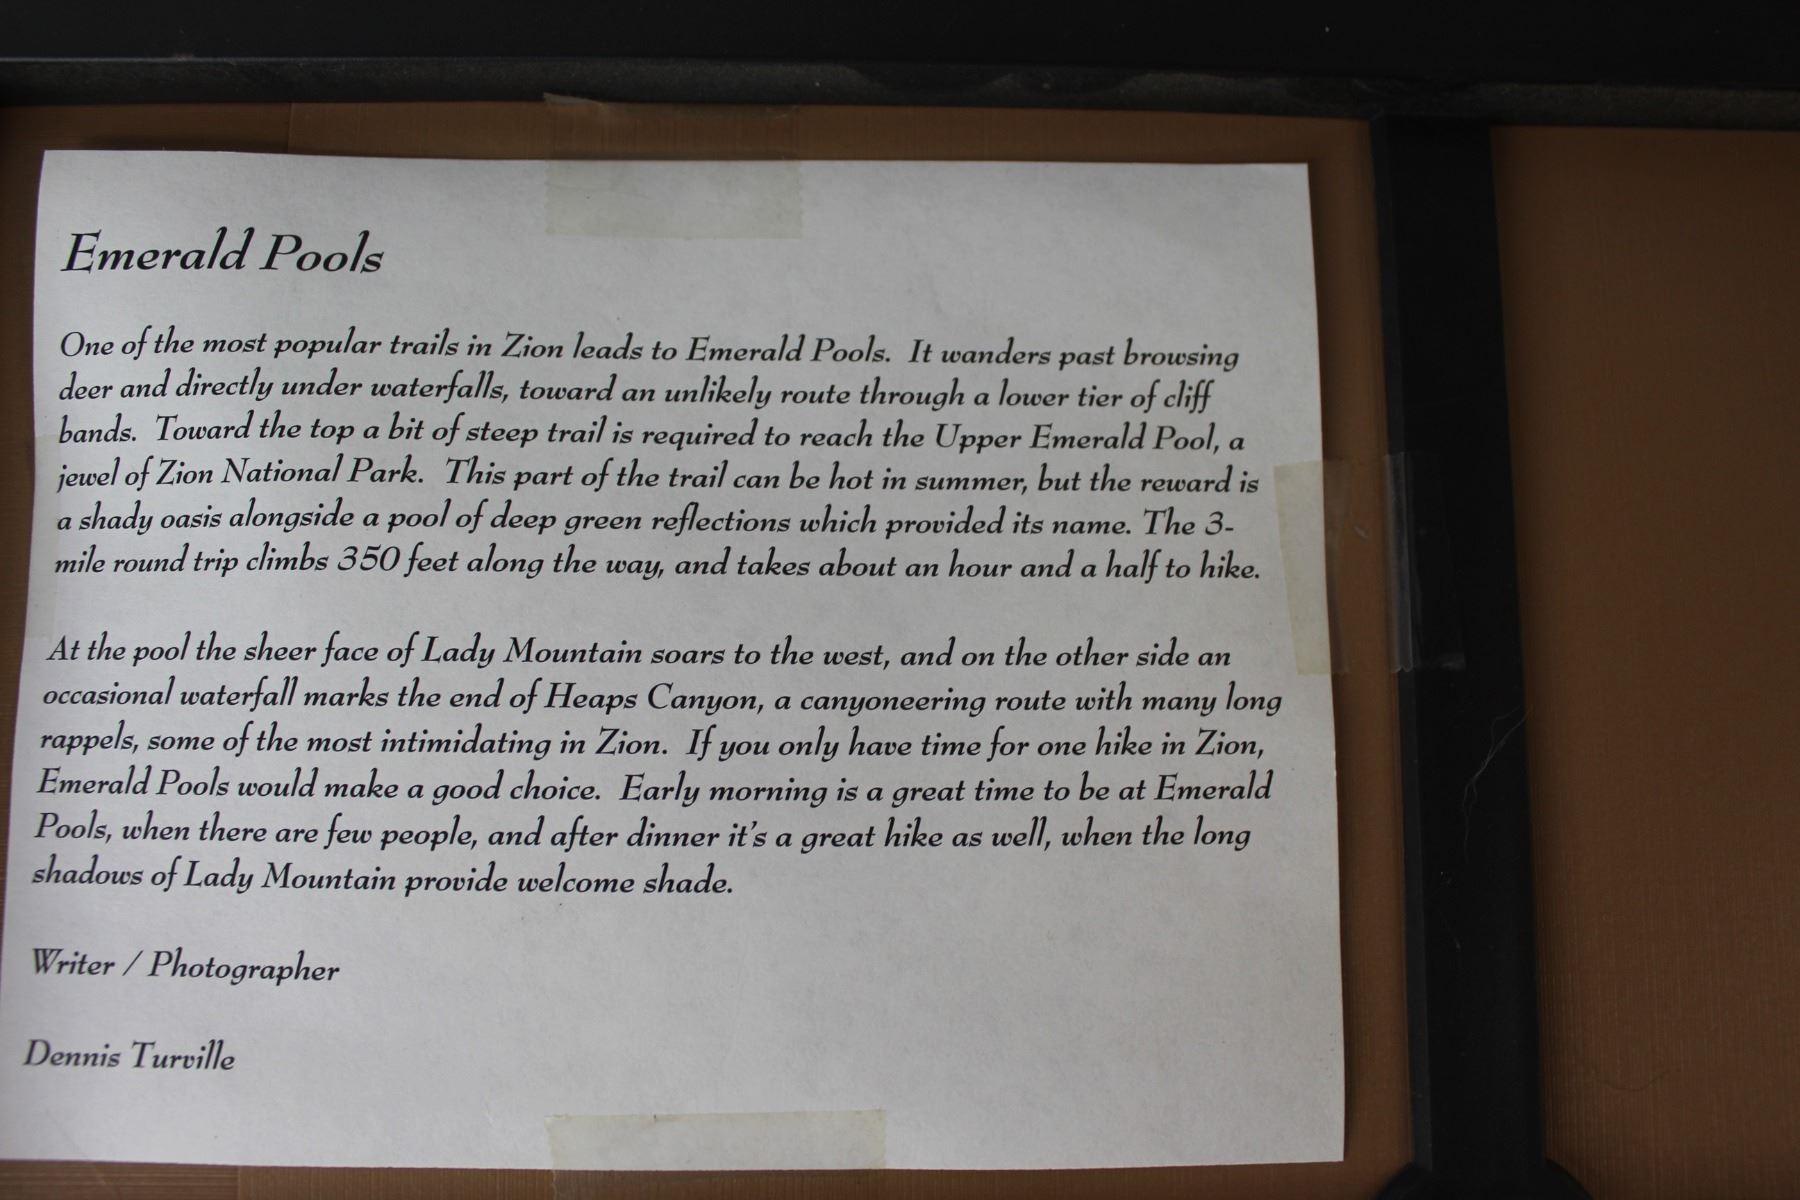 Emerald Pools
One of the most popular trails in Zion leads to Emerald Pools.  It wanders past browsing
deer and directly under waterfalls, toward an unlikely route through a lower tier of cliff
bands.  Toward the top a bit of steep trail is required to reach the Upper Emerald Pool, a
jewel of Zion National Park.  This part of the trail can be hot in summer, but the reward is
a shady oasis alongside a pool of deep green reflections which provided its name. The 3-
mile round trip climbs 350 feet along the way, and takes about an hour and a half to hike.
At the pool the sheer face of Lady Mountain soars to the west, and on the other side an
occasional waterfall marks the end of Heaps Canyon, a canyoneering route with many long
rappels, some of the most intimidating in Zion.  If you only have time for one hike in Zion,
Emerald Pools would make a good choice.  Early morning is a great time to be at Emerald
Pools, when there are few people, and after dinner it's a great hike as well, when the long
shadows of Lady Mountain provide welcome shade.
Writer / Photographer
Dennis Turville